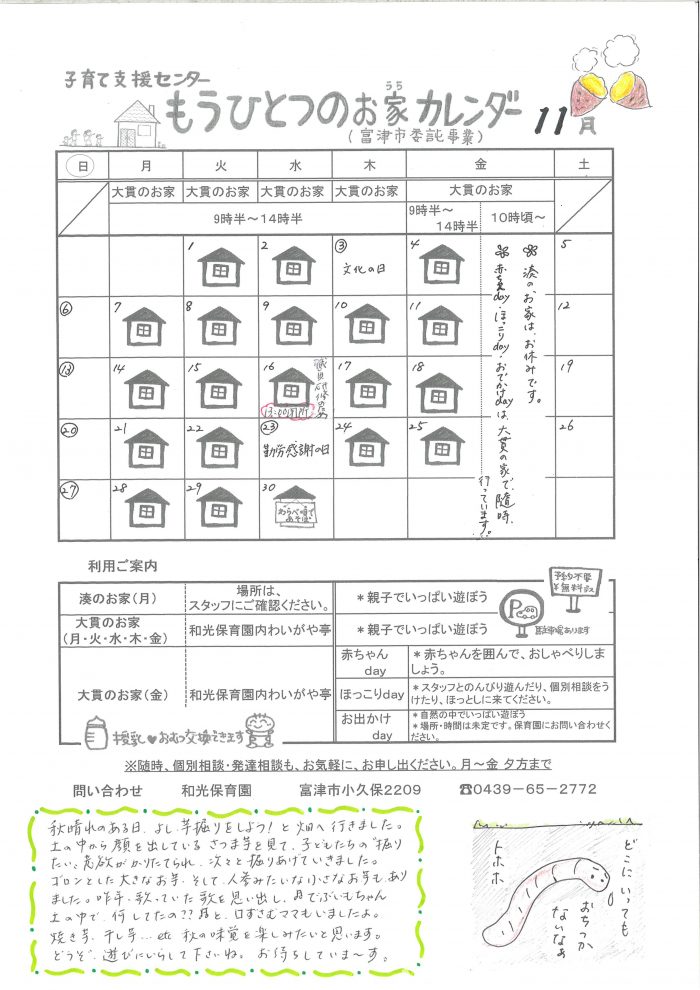 子育て支援センター
もうひとつのお家カレンダー 11月
うち
(富津市委託事業)
日 月 火 水 木 金 土
大貫のお家 大貫のお家 大貫のお家 大貫のお家 大貫のお家
9時半～14時半
9時半～
14時半
10時頃～
1 2 3 4 5
文化の日
6 7 8 9 10 11 12
13 14 15 16 17 18 19
職員研修の為
13:00閉所
20 21 22 23 24 25 26
勤労感謝の日
27 28 29 30
わらべ唄で
あそぼ
湊のお家は、お休みです。
赤ちゃんday・ほっこりday・おでかけdayは、大貫の家で、随時、
行っています。
利用ご案内
湊のお家(月)
場所は、
スタッフにご確認ください。
＊親子でいっぱい遊ぼう
予約不要
¥無料です
大貫のお家
(月・火・水・木・金)
和光保育園内わいがや亭
＊親子でいっぱい遊ぼう
P
駐車場あります
大貫のお家(金)
和光保育園内わいがや亭
赤ちゃん
day
＊赤ちゃんを囲んで、おしゃべりしま
しょう。
ほっこりday
＊スタッフとのんびり遊んだり、個別相談をう
けたり、ほっとしに来てください。
お出かけ
day
＊自然の中でいっぱい遊ぼう
＊場所・時間は未定です。保育園にお問い合わせく
ださい。
授乳♥おむつ交換できます
※随時、個別相談・発達相談も、お気軽に、お申し出ください。月～金 夕方まで
問い合わせ 和光保育園 富津市小久保2209 ☎0439-65-2772
秋晴れのある日、よし、芋掘りをしよう！と畑へ行きました。
土の中から顔を出しているさつま芋を見て、子どもたちの“掘り
たい”意欲がかりたてられ、次々と掘りあげていきました。
ゴロンとした大きなお芋、そして、人参みたいな小さなお芋もあり
ました。昨年、歌っていた歌を思い出し、♬でぶいもちゃん
土の中で、何してたの??♬と、口ずさむママもいましたよ。
焼き芋、干し芋…etc 秋の味覚を楽しみたいと思います。
どうぞ、遊びにいらして下さいね。お待ちしていま～す。
どこにいっても
おちつか
ないなぁ
トホホ